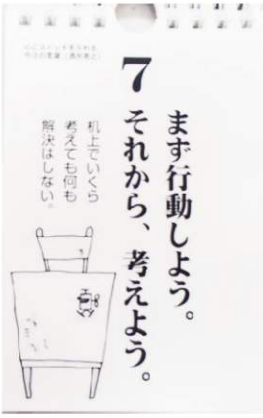 7
まず行動しよう。
それから、考えよう。
机上でいくら
考えても何も
解決はしない。